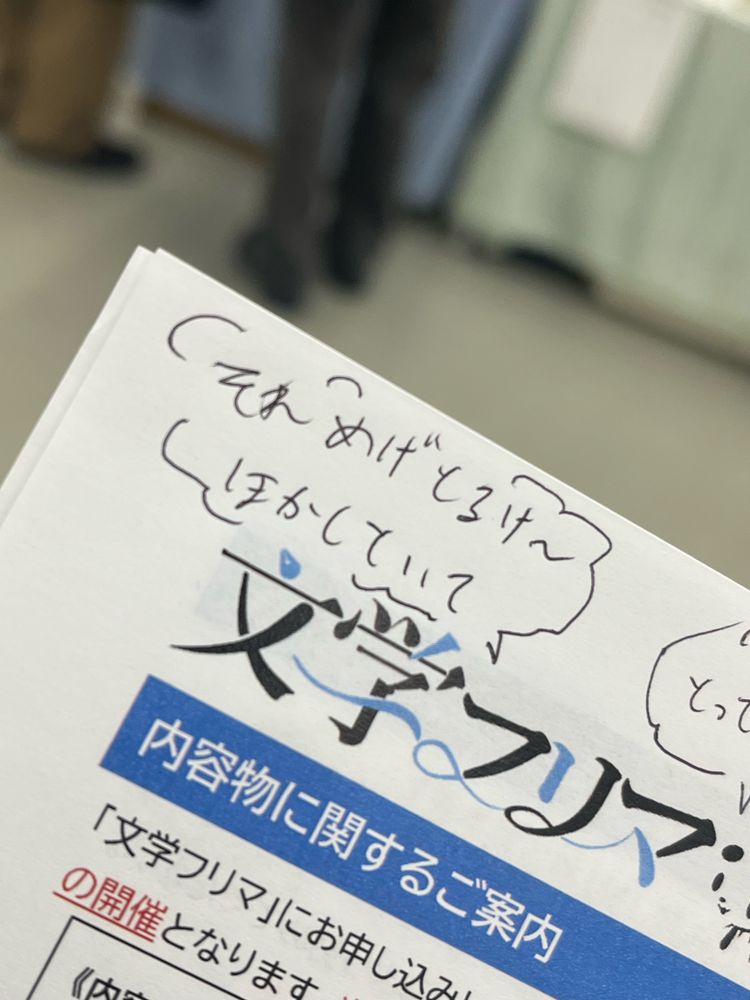 それ めげとるけ〜
ほかしていて
とって
文学フリマ
内容物に関するご案内
「文学フリマ」にお申し込み
の開催となります
《内容